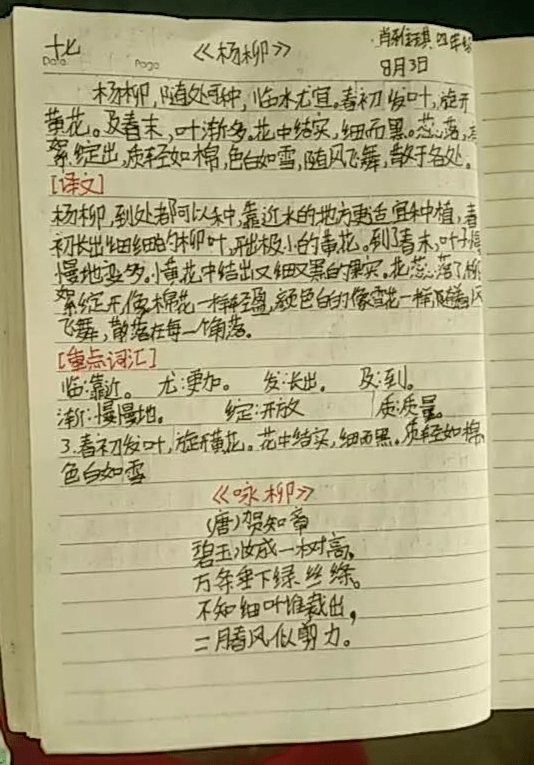 十七 《杨柳》 四年级
Date Page 8月3日
杨柳,随处可种,临水尤宜。春初发叶,旋开
黄花。及春末,叶渐多。花中结实,细而黑。蕊落,
絮绽出,质轻如棉,色白如雪,随风飞舞,散于各处。
[译文]
杨柳,到处都可以种,靠近水的地方更适宜种植,春
初长出细细的柳叶,开出极小的黄花。到了春末,叶子慢
慢地变多。小黄花中结出又细又黑的果实。花蕊落了柳
絮绽开像棉花一样轻盈,颜色白的像雪花一样,随着风
飞舞,散落在每一个角落。
[重点词汇]
临:靠近。 尤:更加。 发:长出。 及:到。
渐:慢慢地。 绽:开放 质:质量。
3.春初发叶,旋开黄花。花中结实,细而黑。质轻如棉
色白如雪
《咏柳》
(唐)贺知章
碧玉妆成一树高,
万条垂下绿丝绦。
不知细叶谁裁出,
二月春风似剪刀。